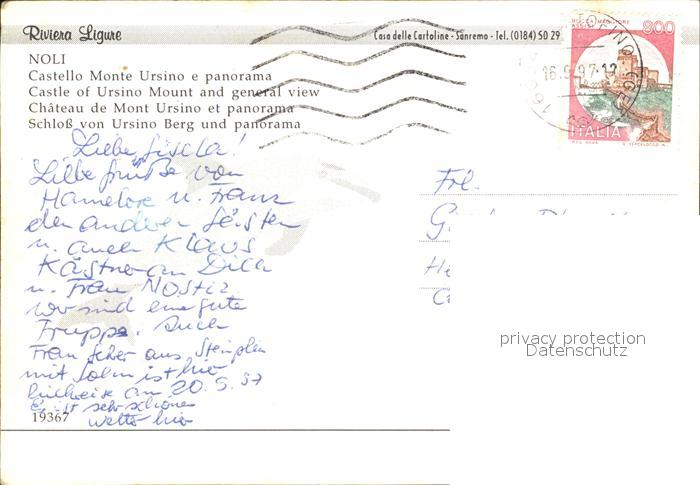 Riviera Ligure
Casa delle Cartoline - Sanremo - Tel. (0184) 50 29
NOLI
Castello Monte Ursino e panorama
Castle of Ursino Mount and general view
Château de Mont Ursino et panorama
Schloß von Ursino Berg und panorama
ROCCA MAGGIORE
ASSISI
800
16.9.97-12
ITALIA
Liebe Gisela!
Liebe Grüße von
Hannelore u. Franz
den anderen
u. auch Klaus
Kästner an Dich
u. Frau Nostiz
wir sind eine gute
Gruppe. Auch
Frau aus
mit Sohn ist hier
am 20.9.97
Es ist sehr schönes
Wetter hier
19367
Frl.
privacy protection
Datenschutz